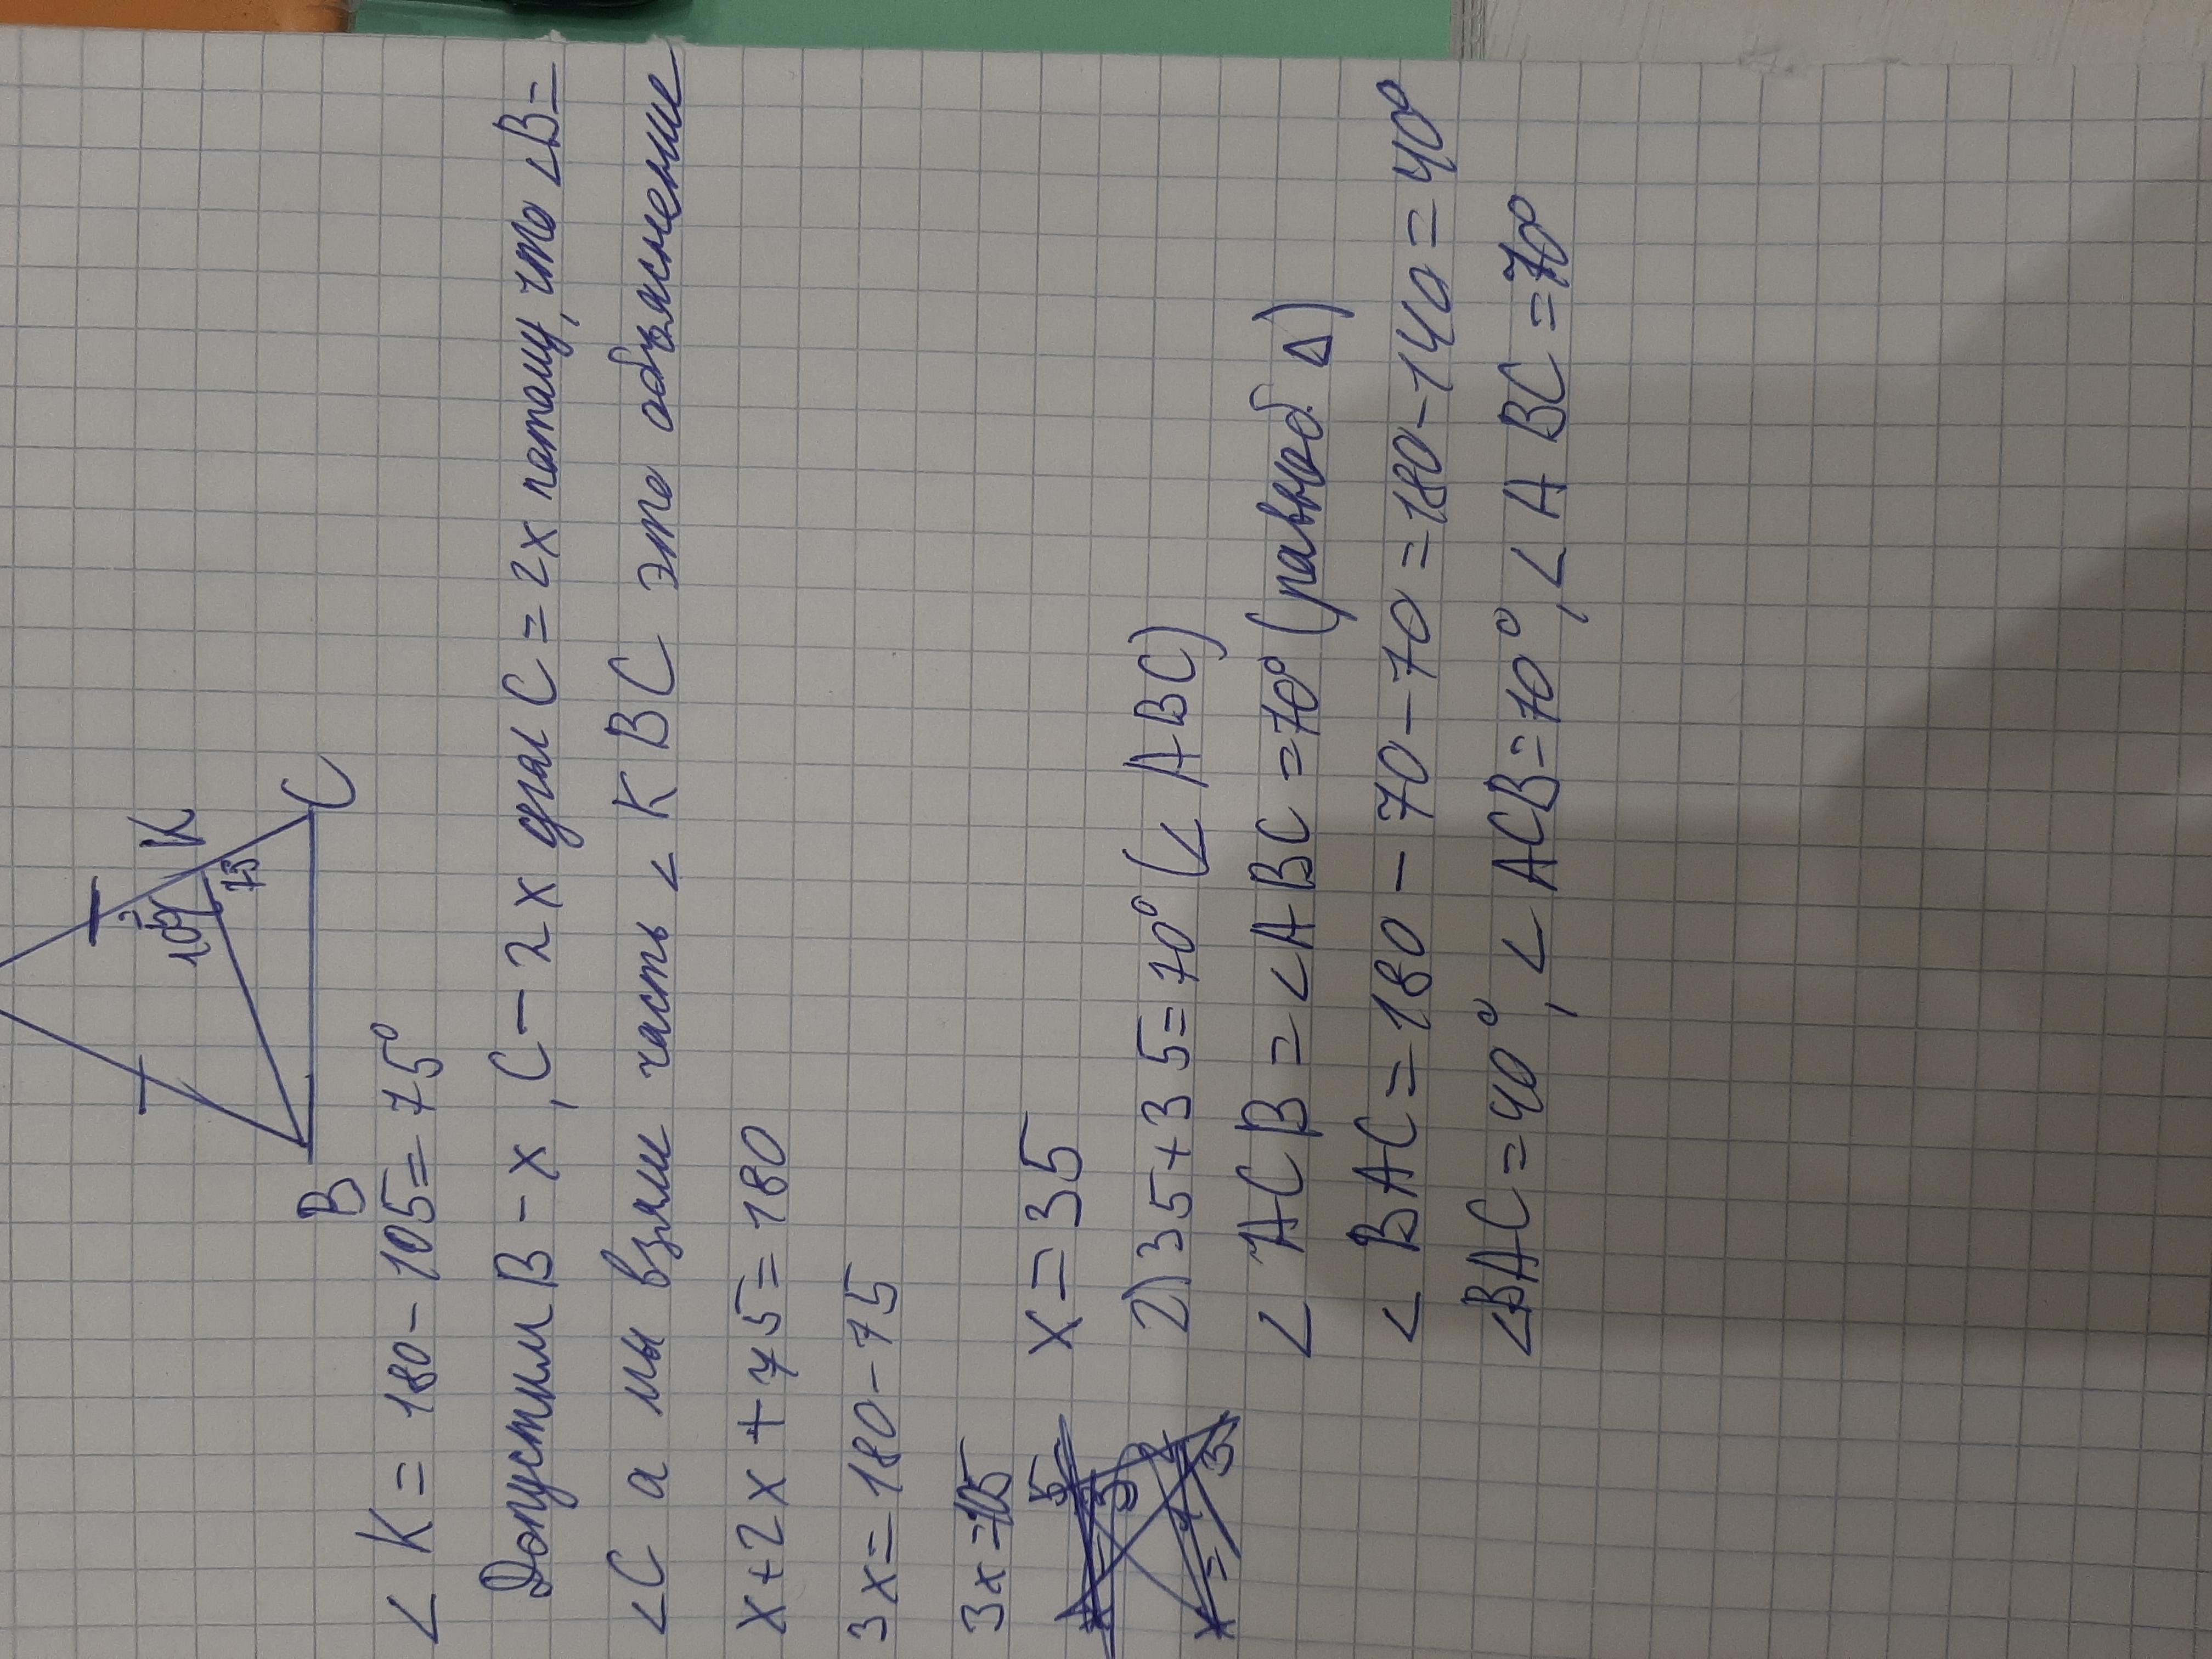 K
105°
75
B
C
∠ K = 180 - 105 = 75°
Допустим B - x, C - 2x угол C = 2x потому, что ∠B =
∠C а мы взяли часть ∠ KBC это объяснение
x + 2x + 75 = 180
3x = 180 - 75
3x = 105
x = 35
2) 35 + 35 = 70° (∠ ABC)
∠ ACB = ∠ABC = 70° (равноб Δ)
∠ BAC = 180 - 70 - 70 = 180 - 140 = 40°
∠BAC = 40°, ∠ ACB = 70°, ∠ ABC = 70°